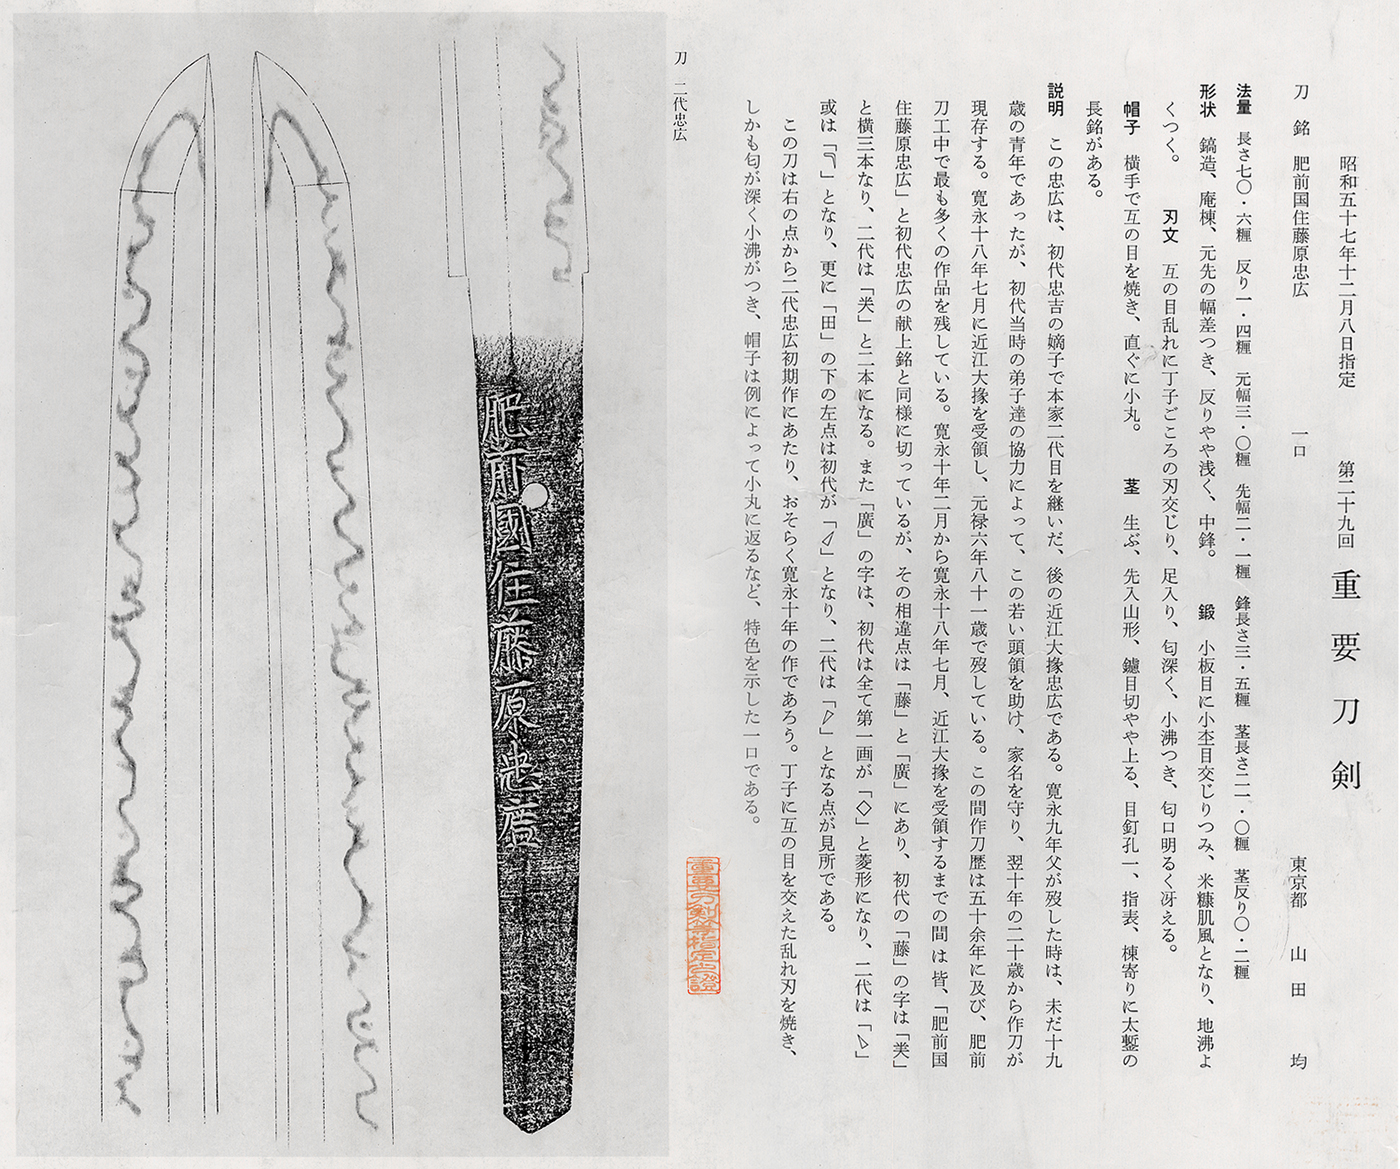 昭和五十七年十二月八日指定　第二十九回 重要刀剣
刀　銘　肥前国住藤原忠広　一口　東京都　山田　均
法量　長さ七〇・六糎　反り一・四糎　元幅三・〇糎　先幅二・一糎　鋒長さ三・五糎　茎長さ二一・〇糎　茎反り〇・二糎
形状　鎬造、庵棟、元先の幅差つき、反りやや浅く、中鋒。　鍛　小板目に小杢目交じりつみ、米糠肌風となり、地沸よ
くつく。　刃文　互の目乱れに丁子ごころの刃交じり、足入り、匂深く、小沸つき、匂口明るく冴える。
帽子　横手で互の目を焼き、直ぐに小丸。　茎　生ぶ、先入山形、鑢目切やや上る、目釘孔一、指表、棟寄りに太鏨の
長銘がある。
説明　この忠広は、初代忠吉の嫡子で本家二代目を継いだ、後の近江大掾忠広である。寛永九年父が歿した時は、未だ十九
歳の青年であったが、初代当時の弟子達の協力によって、この若い頭領を助け、家名を守り、翌十年の二十歳から作刀が
現存する。寛永十八年七月に近江大掾を受領し、元禄六年八十一歳で歿している。この間作刀歴は五十余年に及び、肥前
刀工中で最も多くの作品を残している。寛永十年二月から寛永十八年七月、近江大掾を受領するまでの間は皆、「肥前国
住藤原忠広」と初代忠広の献上銘と同様に切っているが、その相違点は「藤」と「廣」にあり、初代の「藤」の字は「」
と横三本なり、二代は「」と二本になる。また「廣」の字は、初代は全て第一画が「◇」と菱形になり、二代は「」
或は「」となり、更に「田」の下の左点は初代が「」となり、二代は「」となる点が見所である。
この刀は右の点から二代忠広初期作にあたり、おそらく寛永十年の作であろう。丁子に互の目を交えた乱れ刃を焼き、
しかも匂が深く小沸がつき、帽子は例によって小丸に返るなど、特色を示した一口である。
重要刀剣等指定之證
刀　二代忠広
肥前國住藤原忠廣